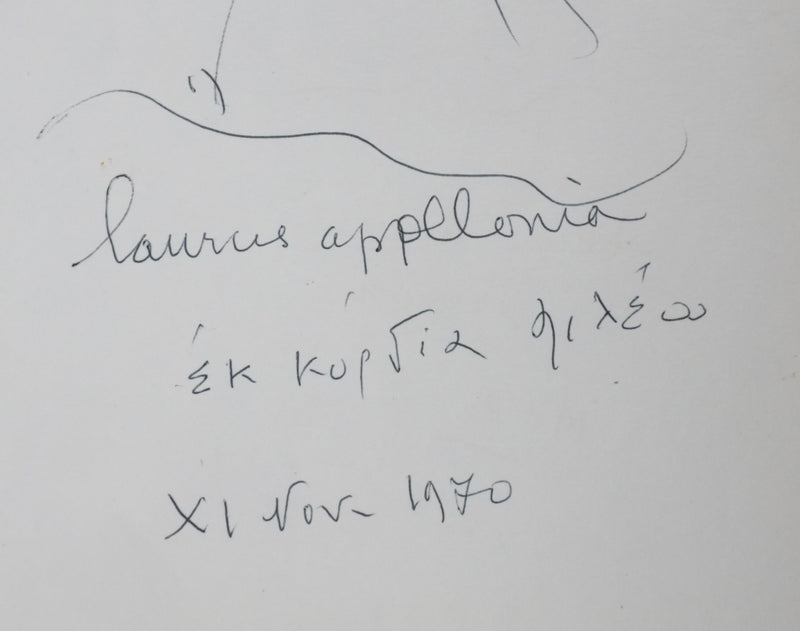 laurus appollonia
ἐκ κάρδια φιλέω
XI Nov. 1970